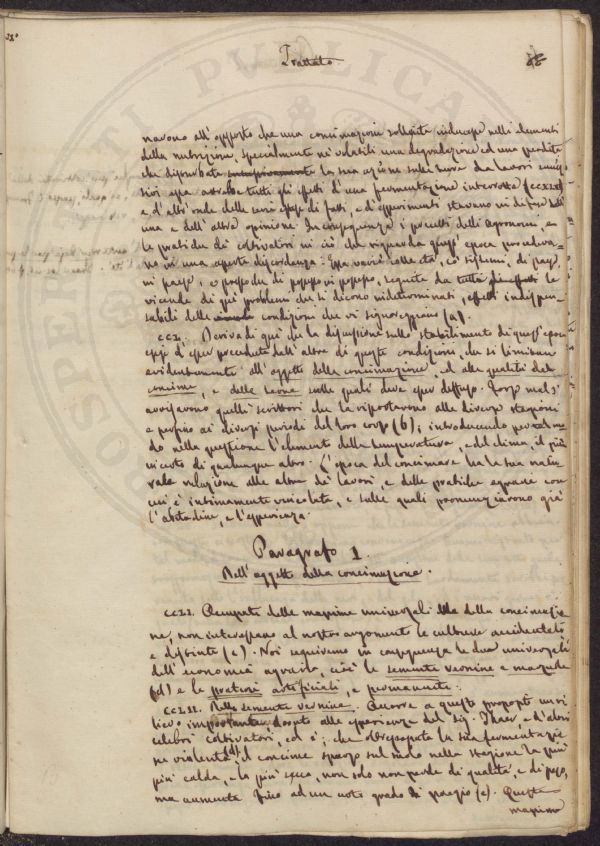 Trattato
navono all'opposto che una concimazione sollecita inducesse nelli elementi
della nutrizione, specialmente ne' volatili una degradazione ed una perdita
che disturbata la sua azione sulla terra da lavori
essa avrebbe tutti gli effetti d'una fermentazione interrotta
e d'altronde delle serie di fatti, e d'esperimenti stavano in difesa dell'
una e dell'altra opinione. In conseguenza i precetti delli Agronomi, e
le pratiche de' coltivatori in ciò che riguarda quest'epoca procedeva-
no in una aperta discordanza. Essa variò colle età, co' sistemi, di paese
in paese, e perfino di podere in podere, seguendo da tutta le
vicende di que' problemi che si dicono indeterminati, effetti indispen-
sabili delle condizioni che vi signoreggiano (a).
CCXX. Deriva di qui che la discussione sullo stabilimento di quest'epoca
esser preceduta dall'altre di queste condizioni, che si limitano
evidentemente all'oggetto della concimazione, ed alle qualità del
concime, e delle terre sulle quali deve esser diffuso. Forse mal s'
avvisavano quelli scrittori che la riportavano alle diverse stagioni
e perfino ai diversi periodi del loro corso (b); introducendo per tal mo-
do nella questione l'elemento della temperatura, e del clima, il più
incerto di qualunque altro. L'epoca del concimare ha la sua natu-
rale relazione alle altre de' lavori, e delle pratiche agrarie con
cui è intimamente vincolata, e sulle quali pronunziarono già
l'abitudine, e l'esperienza.
Paragrafo 1.
Dell'oggetto della concimazione.
CCXXI. Occupati delle massime universali della concimazio-
ne, non interessano al nostro argomento le culture accidentali
e distinte (c). Noi seguiremo in conseguenza le due universali
dell'economia agraria, cioè le semente vernine e marzuole
(d) e le praterie artificiali, e permanenti.
CCXXII. Delle semente vernine. Occorre a questo proposito un ri-
lievo importante dovuto alle esperienze del Sig. Thaer, e d'altri
celebri coltivatori, ed è; che oltrepassata la sua fermentazio-
ne violenta il concime sparso sul suolo nella stagione la più
più calda, e la più secca, non solo non perde di qualità, e di peso,
ma aumenta fino ad un certo grado di pregio (e). Questa
massima